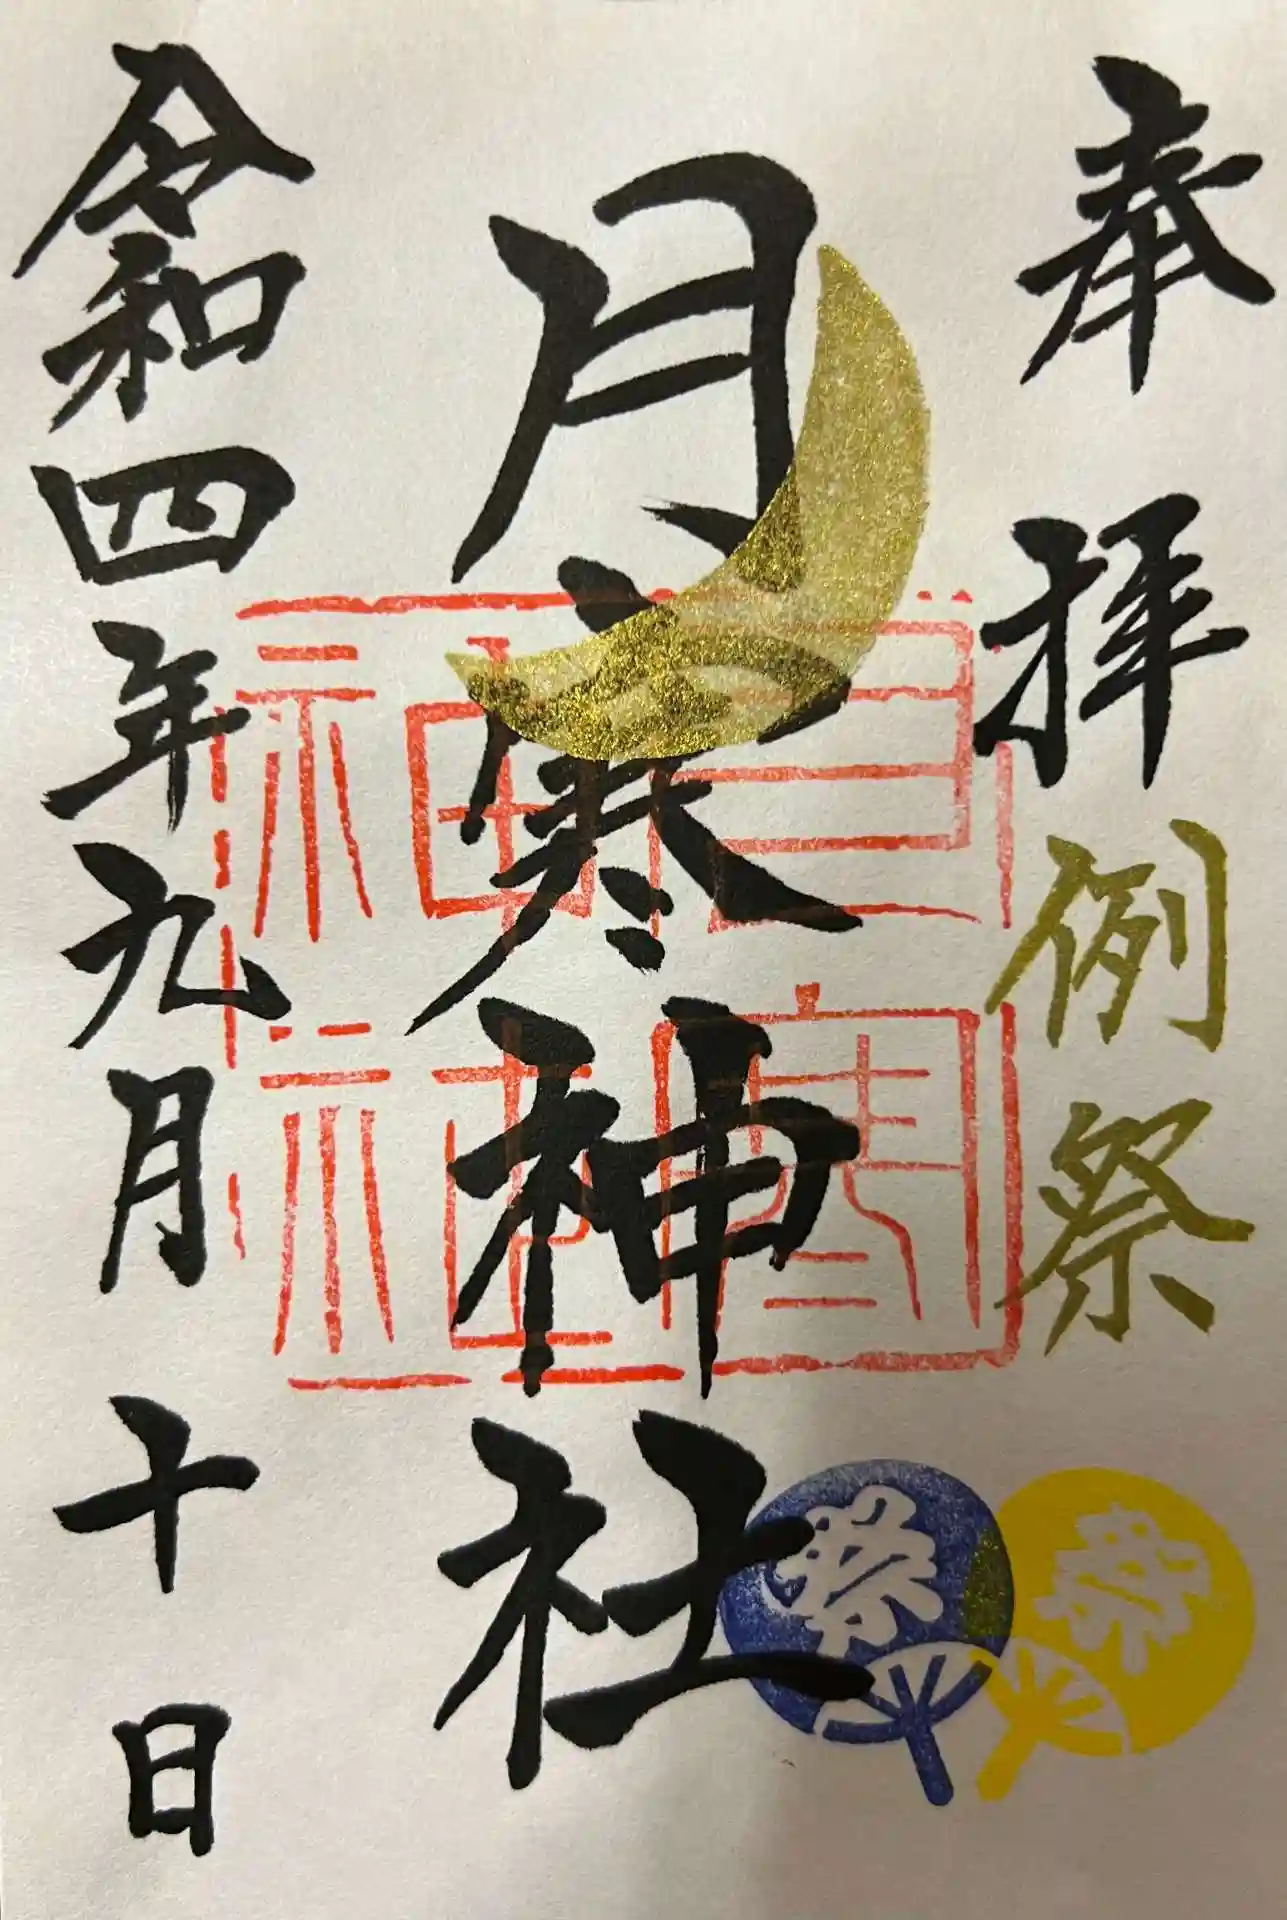 奉拝
例祭
祭
祭
月寒神社
月寒神社
令和四年九月十日